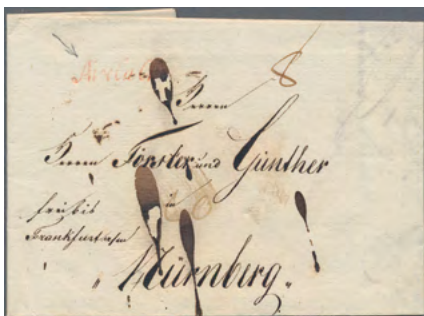 8
Herrn
Herrn Förster und Günther
in
frei bis
Frankfurt a/m
„Nürnberg„